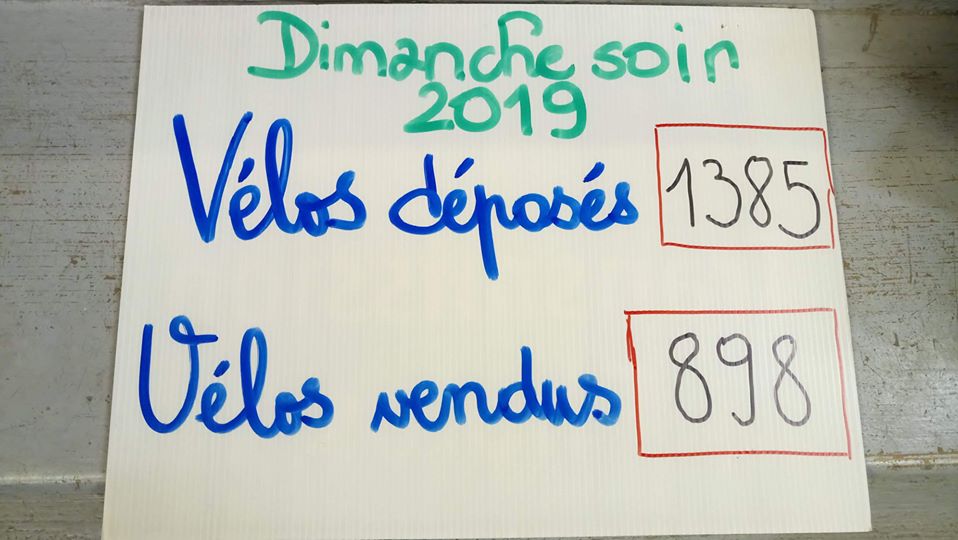 Dimanche soin
2019
Vélos déposés 1385
Vélos vendus 898